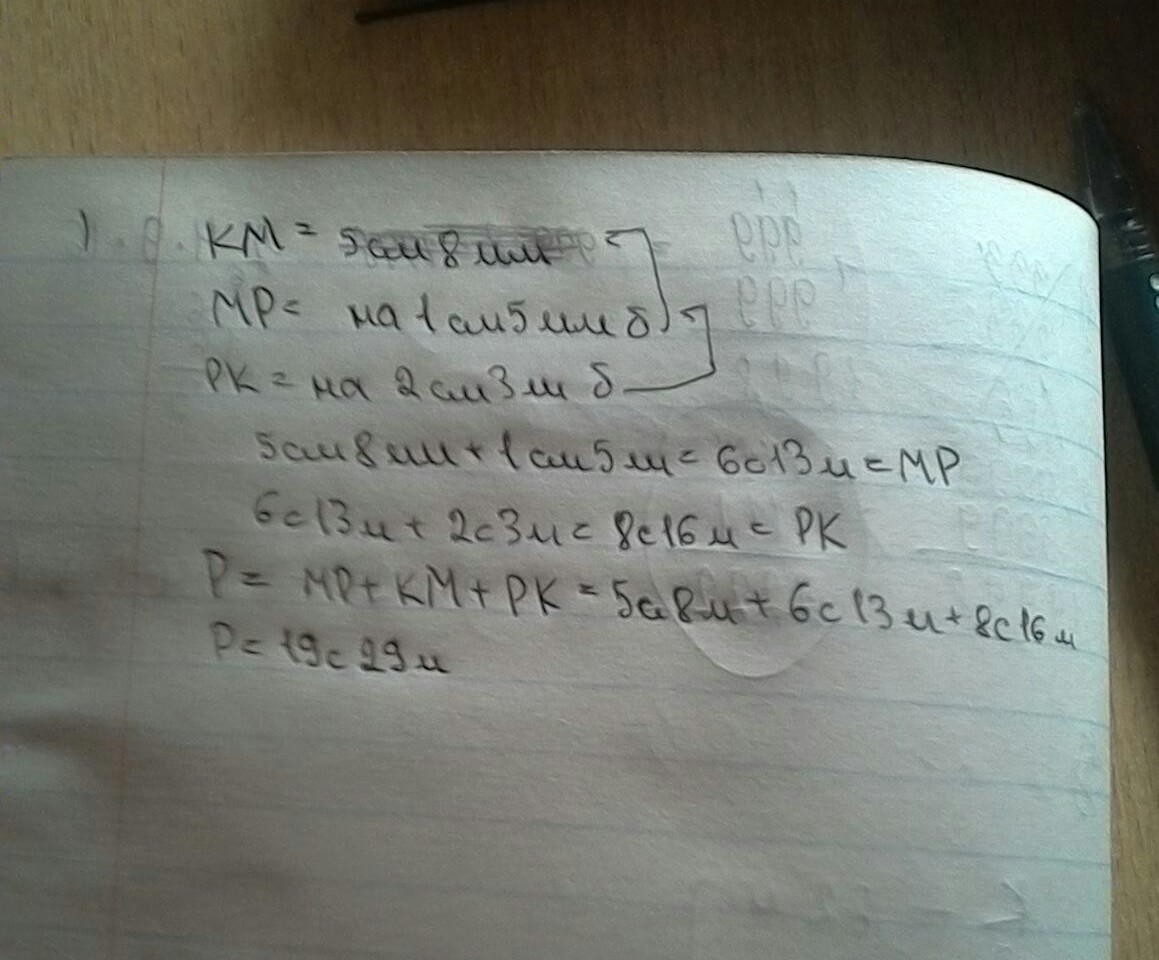 1. KM = 5см 8 мм
MP = на 1 см 5 мм б
PK = на 2 см 3 м б
5см 8 мм + 1 см 5 м = 6с 13 м = MP
6с 13 м + 2с 3м = 8с 16 м = PK
P = MP + KM + PK = 5с 8м + 6с 13 м + 8с 16 м
P = 19с 29 м